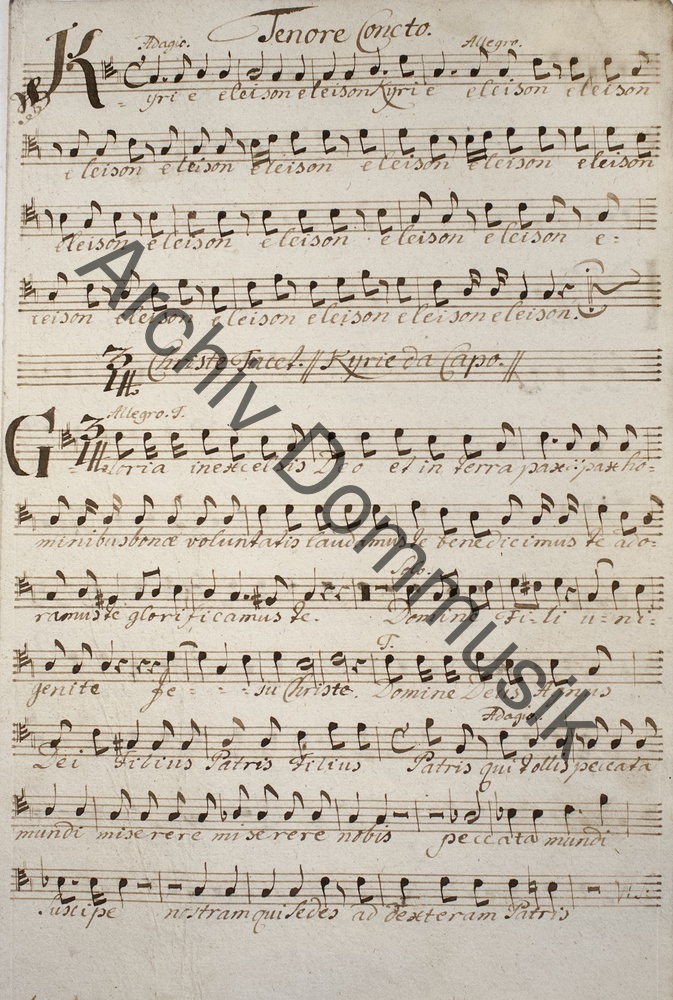 Tenore Concto.
Adagio. Allegro.
Kyrie eleison eleison Kyrie eleison eleison
eleison eleison eleison eleison eleison eleison
eleison eleison eleison eleison eleison e-
leison eleison eleison eleison eleison eleison.
3/4 Christe Tacet. // Kyrie da Capo. //
Allegro. T.
3/4 Gloria in excelsis Deo et in terra pax pax ho-
minibus bonæ voluntatis laudamus te benedicimus te ado-
ramus te glorificamus te. Domine Fi-li u-ni-
Solo.
genite Je - - - su Christe. Domine Deus Agnus
T.
Adagio.
Dei Filius Patris Filius Patris qui tollis peccata
mundi miserere miserere nobis peccata mundi
Suscipe nostram qui sedes ad dexteram Patris
Archiv Dommusik